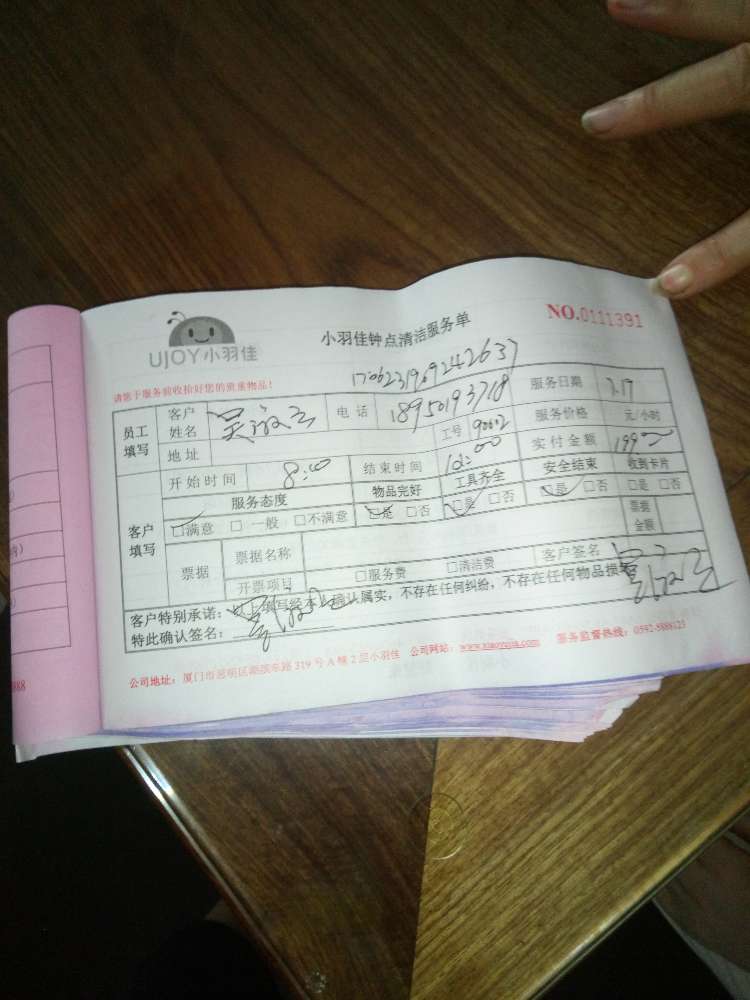 UJOY小羽佳
小羽佳钟点清洁服务单
NO.0111391
请您于服务前收拾好您的贵重物品!
170623190924263
员工填写 客户姓名 吴 电话 18950193718 服务日期 7.17
地址 工号 90602 服务价格 元/小时
开始时间 8:00 结束时间 12:00 实付金额 199
客户填写 服务态度 物品完好 工具齐全 安全结束 收到卡片
□满意 □一般 □不满意 □是 □否 □是 □否 □是 □否 □是 □否
票据 票据名称 票据金额
开票项目 □服务费 □清洁费 客户签名
客户特别承诺:以上填写经本人确认属实,不存在任何纠纷,不存在任何物品损
特此确认签名:
公司地址:厦门市思明区湖滨东路 319 号 A 幢 2 层小羽佳 公司网站:www.xiaoyujia.com 服务监督热线:0592-5888123
888